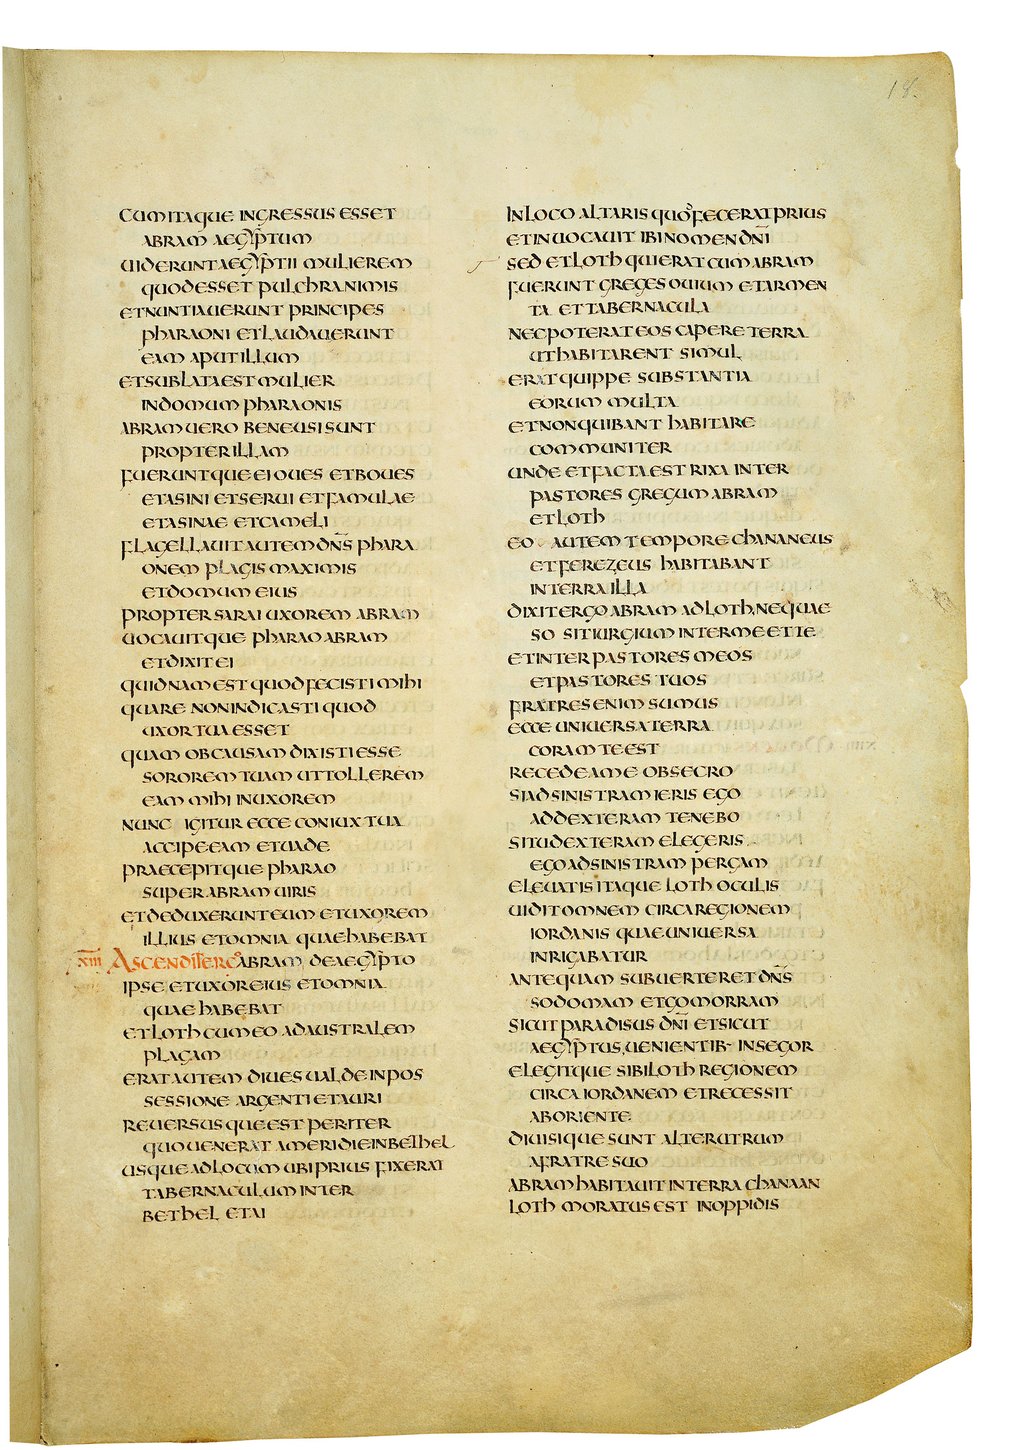 18.
CUM ITAQUE INGRESSUS ESSET
ABRAM AEGYPTUM
UIDERUNT AEGYPTII MULIEREM
QUOD ESSET PULCHRA NIMIS
ET NUNTIAUERUNT PRINCIPES
PHARAONI ET LAUDAUERUNT
EAM APUT ILLUM
ET SUBLATA EST MULIER
IN DOMUM PHARAONIS
ABRAM UERO BENE USI SUNT
PROPTER ILLAM
FUERUNTQUE EI OUES ET BOUES
ET ASINI ET SERUI ET FAMULAE
ET ASINAE ET CAMELI
FLAGELLAUIT AUTEM DN̄S PHARA
ONEM PLAGIS MAXIMIS
ET DOMUM EIUS
PROPTER SARAI UXOREM ABRAM
UOCAUITQUE PHARAO ABRAM
ET DIXIT EI
QUIDNAM EST QUOD FECISTI MIHI
QUARE NON INDICASTI QUOD
UXOR TUA ESSET
QUAM OB CAUSAM DIXISTI ESSE
SOROREM TUAM UT TOLLEREM
EAM MIHI IN UXOREM
NUNC IGITUR ECCE CONIUX TUA
ACCIPE EAM ET UADE
PRAECEPITQUE PHARAO
SUPER ABRAM UIRIS
ET DEDUXERUNT EUM ET UXOREM
ILLIUS ET OMNIA QUAE HABEBAT
XIII ASCENDIT ERGO ABRAM DE AEGYPTO
IPSE ET UXOR EIUS ET OMNIA
QUAE HABEBAT
ET LOTH CUM EO AD AUSTRALEM
PLAGAM
ERAT AUTEM DIUES UALDE IN POS
SESSIONE ARGENTI ET AURI
REUERSUSQUE EST PER ITER
QUO UENERAT A MERIDIE IN BETHEL
USQUE AD LOCUM UBI PRIUS FIXERAT
TABERNACULUM INTER
BETHEL ET AI
IN LOCO ALTARIS QUOD FECERAT PRIUS
ET INUOCAUIT IBI NOMEN DN̄I
SED ET LOTH QUI ERAT CUM ABRAM
FUERUNT GREGES OUIUM ET ARMEN
TA ET TABERNACULA
NEC POTERAT EOS CAPERE TERRA
UT HABITARENT SIMUL
ERAT QUIPPE SUBSTANTIA
EORUM MULTA
ET NON QUIBANT HABITARE
COMMUNITER
UNDE ET FACTA EST RIXA INTER
PASTORES GREGUM ABRAM
ET LOTH
EO AUTEM TEMPORE CHANANEUS
ET FEREZEUS HABITABANT
IN TERRA ILLA
DIXIT ERGO ABRAM AD LOTH NE QUAE
SO SIT IURGIUM INTER ME ET TE
ET INTER PASTORES MEOS
ET PASTORES TUOS
FRATRES ENIM SUMUS
ECCE UNIUERSA TERRA
CORAM TE EST
RECEDE A ME OBSECRO
SI AD SINISTRAM IERIS EGO
AD DEXTERAM TENEBO
SI TU DEXTERAM ELEGERIS
EGO AD SINISTRAM PERGAM
ELEUATIS ITAQUE LOTH OCULIS
UIDIT OMNEM CIRCA REGIONEM
IORDANIS QUAE UNIUERSA
INRIGABATUR
ANTEQUAM SUBUERTERET DN̄S
SODOMAM ET GOMORRAM
SICUT PARADISUS DN̄I ET SICUT
AEGYPTUS UENIENTIB· IN SEGOR
ELEGITQUE SIBI LOTH REGIONEM
CIRCA IORDANEM ET RECESSIT
AB ORIENTE
DIUISIQUE SUNT ALTERUTRUM
A FRATRE SUO
ABRAM HABITAUIT IN TERRA CHANAAN
LOTH MORATUS EST IN OPPIDIS